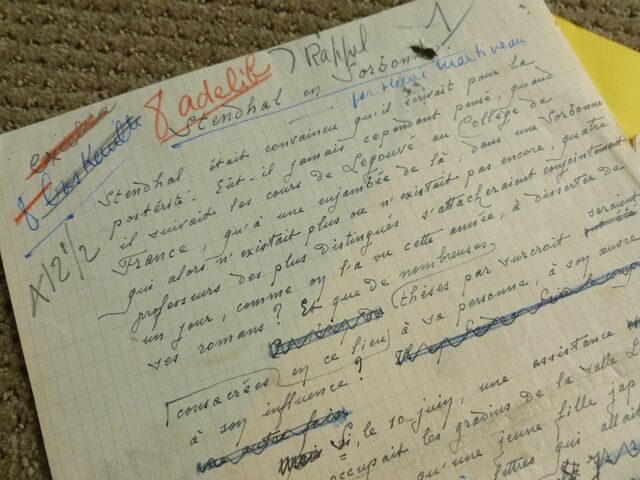 7 Rappel 1
8 adelib
Stendhal en Sorbonne
par Henri Martineau
8
x 12 1/2
Stendhal était convaincu qu'il écrivait pour la
postérité. Eût-il jamais cependant pensé, quand
il suivait les cours de Legouvé au Collège de
France, qu'à une enjambée de là, dans une Sorbonne
qui alors n'existait plus ou n'existait pas encore, quatre
professeurs des plus distingués s'attacheraient conjointement
un jour, comme on l'a vu cette année, à disserter de
ses romans? Et que de nombreuses
thèses par surcroît seraient
consacrées en ce lieu à sa personne, à son œuvre
à son influence?
Si, le 10 juin, une assistance
occupait les gradins de la salle L
qu'une jeune fille jap
lettres qui allait